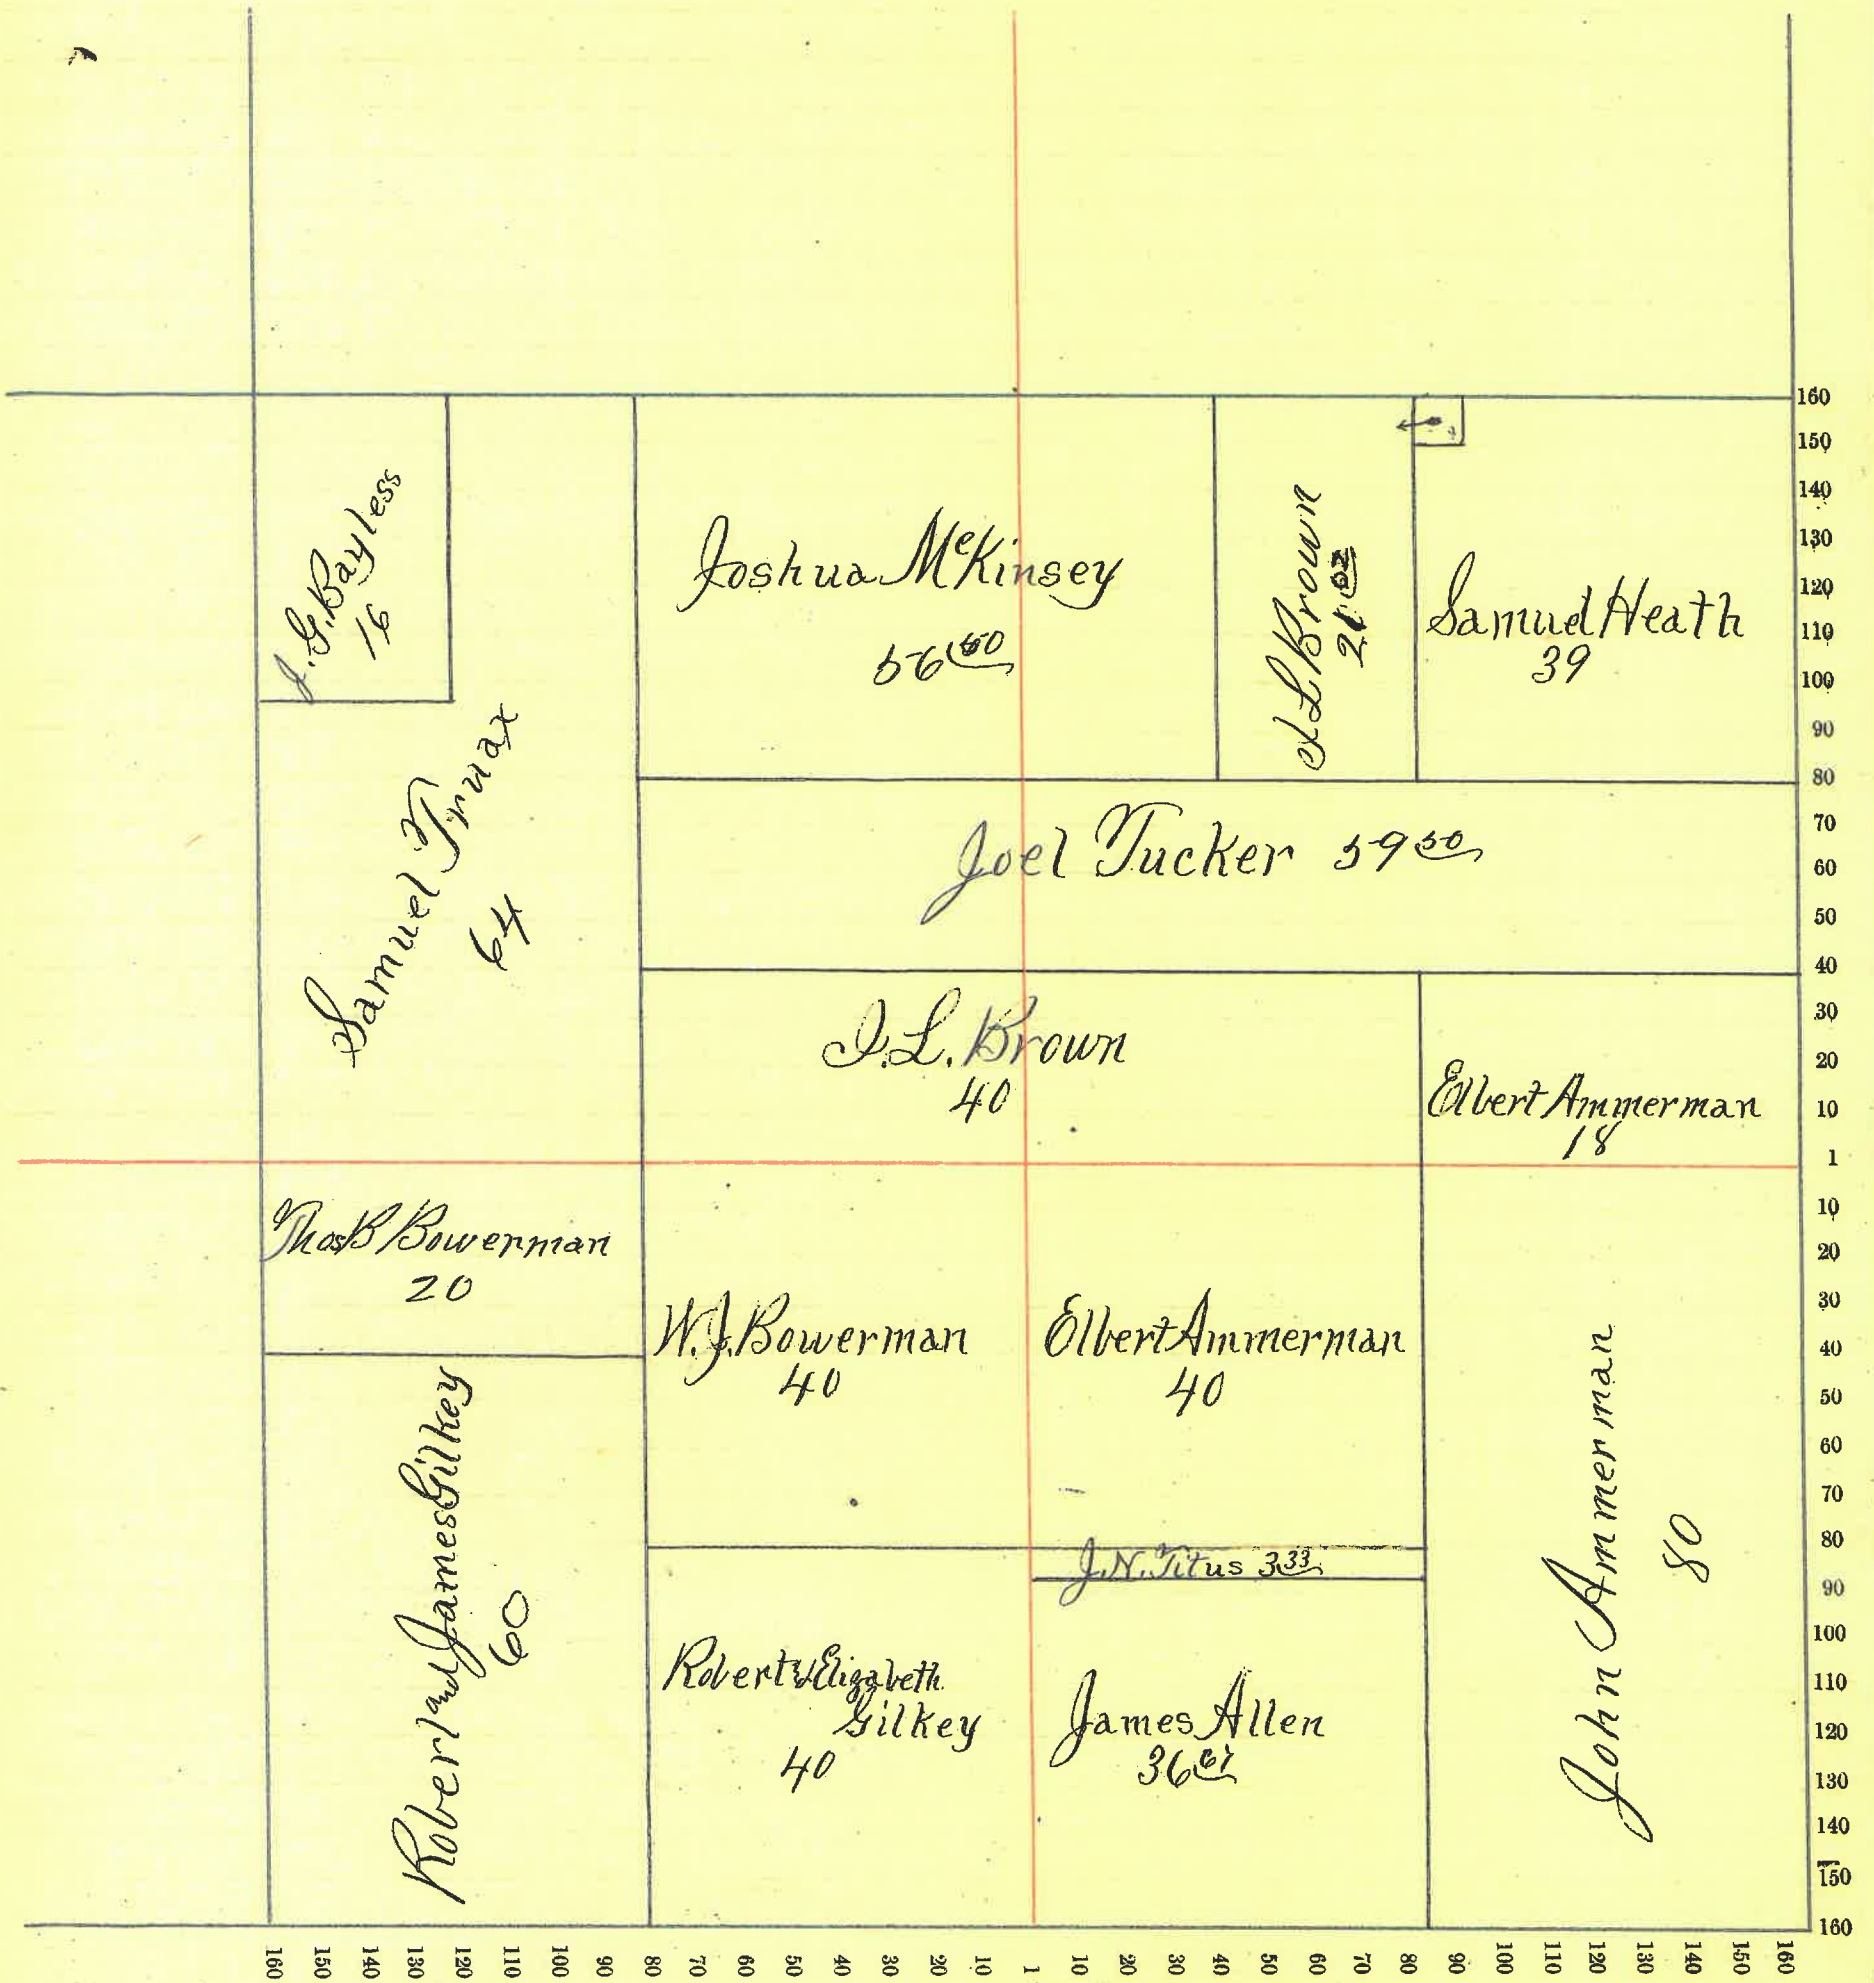 J. G. Bayless
16
Joshua McKinsey
56 50
L Brown
21 02
Samuel Heath
39
Samuel Truax
64
Joel Tucker 59 50
I. L. Brown
40
Elbert Ammerman
18
Thos B Bowerman
20
W. J. Bowerman
40
Elbert Ammerman
40
John Ammerman
80
Robert and James Gilkey
60
J. N. Titus 3 33
Robert & Elizabeth
Gilkey
40
James Allen
36 67
160
150
140
130
120
110
100
90
80
70
60
50
40
30
20
10
1
10
20
30
40
50
60
70
80
90
100
110
120
130
140
150
160
160 150 140 130 120 110 100 90 80 70 60 50 40 30 20 10 1 10 20 30 40 50 60 70 80 90 100 110 120 130 140 150 160